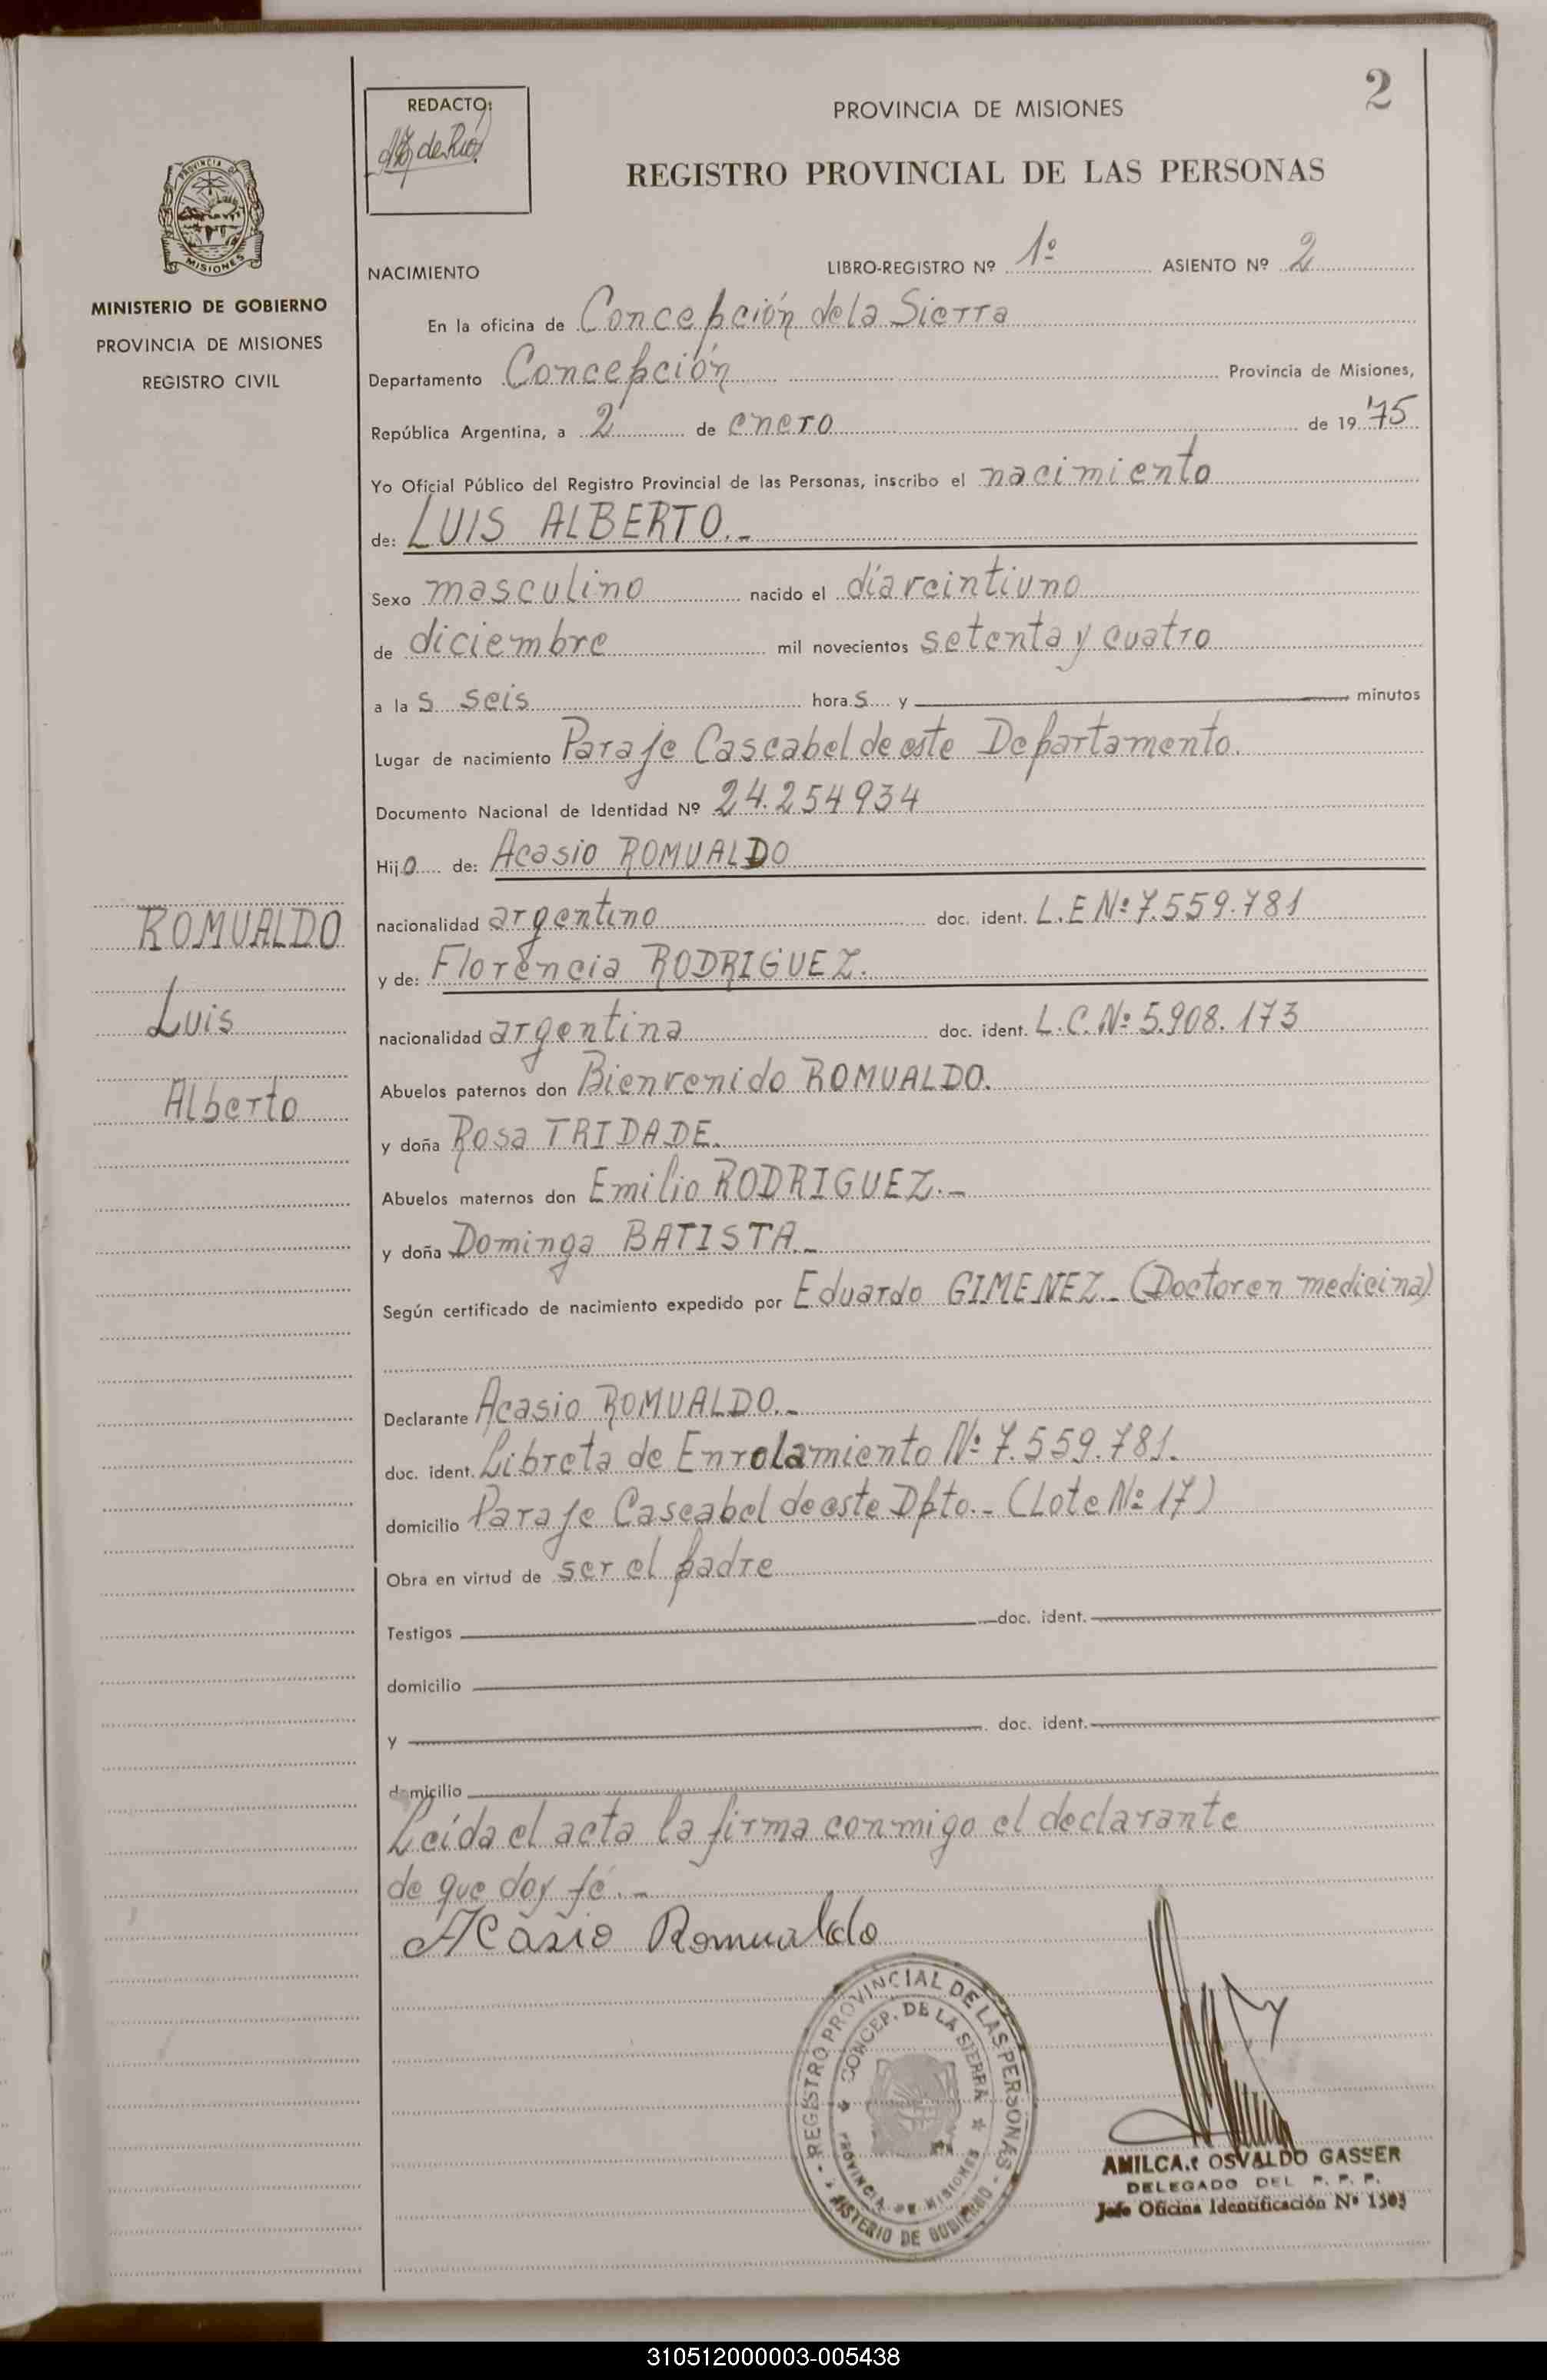 2
REDACTO:
PROVINCIA DE MISIONES
REGISTRO PROVINCIAL DE LAS PERSONAS
PROVINCIA DE
MISIONES
MINISTERIO DE GOBIERNO
PROVINCIA DE MISIONES
REGISTRO CIVIL
NACIMIENTO LIBRO-REGISTRO Nº 1º ASIENTO Nº 2
En la oficina de Concepción de la Sierra
Departamento Concepción Provincia de Misiones,
República Argentina, a 2 de enero de 19 75
Yo Oficial Público del Registro Provincial de las Personas, inscribo el nacimiento
de: LUIS ALBERTO.-
Sexo masculino nacido el día veintiuno
de diciembre mil novecientos setenta y cuatro
a la s seis hora s y minutos
Lugar de nacimiento Paraje Cascabel de este Departamento.
Documento Nacional de Identidad Nº 24.254934
Hijo de: Acasio ROMUALDO
nacionalidad argentino doc. ident. L.E Nº 7.559.781
y de: Florencia RODRIGUEZ.
nacionalidad argentina doc. ident. L.C. Nº 5.908.173
Abuelos paternos don Bienvenido ROMUALDO.
y doña Rosa TRIDADE.
Abuelos maternos don Emilio RODRIGUEZ.-
y doña Dominga BATISTA.-
Según certificado de nacimiento expedido por Eduardo GIMENEZ.- (Doctor en medicina)
Declarante Acasio ROMUALDO.-
doc. ident. Libreta de Enrolamiento Nº 7.559.781.
domicilio Paraje Cascabel de este Dpto.- (Lote Nº 17)
Obra en virtud de ser el padre
Testigos doc. ident.
domicilio
y doc. ident.
domicilio
Leída el acta la firma conmigo el declarante
de que doy fé.-
Acasio Romualdo
ROMUALDO
Luis
Alberto
REGISTRO PROVINCIAL DE LAS PERSONAS
CONCEP. DE LA SIERRA
PROVINCIA DE MISIONES
MINISTERIO DE GOBIERNO
AMILCAR OSVALDO GASSER
DELEGADO DEL R. P. P.
Jefe Oficina Identificación Nº 1303
310512000003-005438